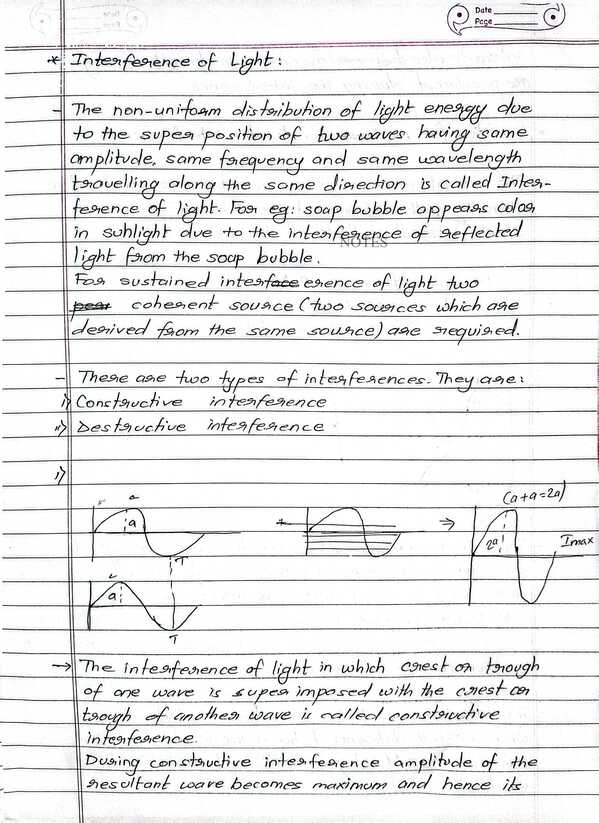 Date
Page
* Interference of Light:
- The non-uniform distribution of light energy due
to the super position of two waves having same
amplitude, same frequency and same wavelength
travelling along the same direction is called Inter-
ference of light. For eg: soap bubble appears color
in suhlight due to the interference of reflected
NOTES
light from the soap bubble.
For sustained interface erence of light two
coherent source (two sources which are
derived from the same source) are required.
- There are two types of interferences. They are:
i) Constructive interference
ii) Destructive interference
i)
(a+a=2a)
a
+
⇒
2a
Imax
T
a
T
→ The interference of light in which crest or trough
of one wave is super imposed with the crest or
trough of another wave is called constructive
interference.
During constructive interference amplitude of the
resultant wave becomes maximum and hence its